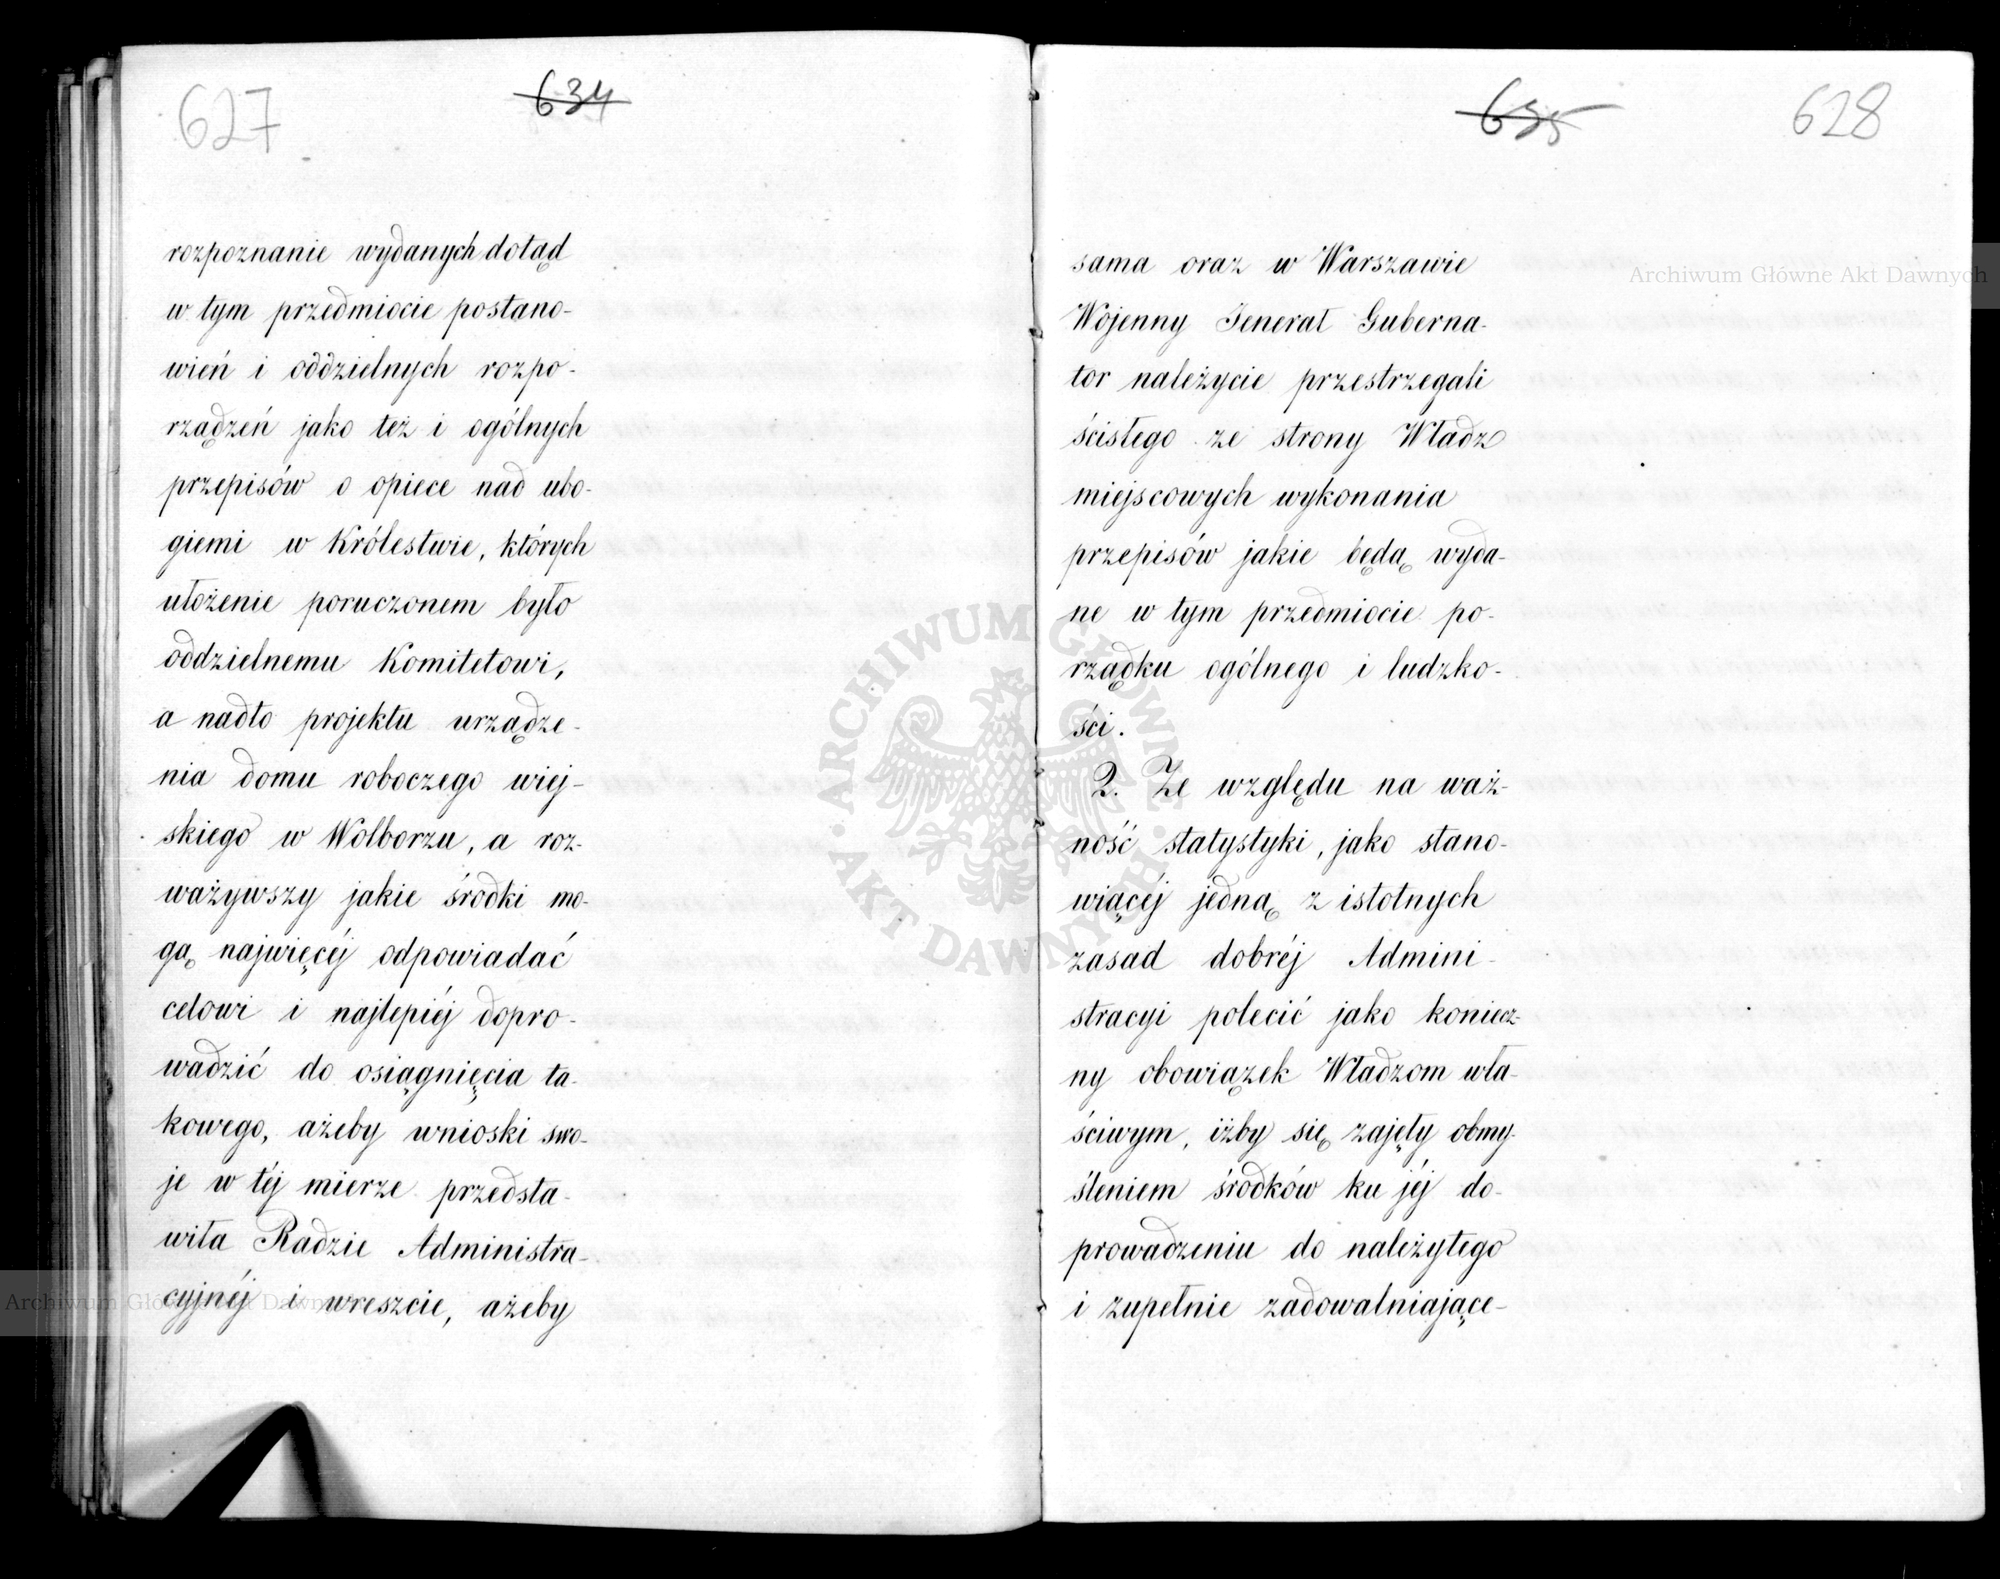 627
634
rozpoznanie wydanych dotąd
w tym przedmiocie postano-
wień i oddzielnych rozpo-
rządzeń jako też i ogólnych
przepisów o opiece nad ubo-
giemi w Królestwie, których
ułożenie poruczonem było
oddzielnemu Komitetowi,
a nadto projektu urządze-
nia domu roboczego wiej-
skiego w Wolborzu, a roz-
ważywszy jakie środki mo-
gą najwięcéj odpowiadać
celowi i najlepiéj dopro-
wadzić do osiągnięcia ta-
kowego, ażeby wnioski swo-
je w téj mierze przedsta-
wiła Radzie Administra-
cyjnéj i wreszcie, ażeby
635
628
sama oraz w Warszawie
Wojenny Jenerał Guberna-
tor należycie przestrzegali
ścisłego ze strony Władz
miejscowych wykonania
przepisów jakie będą wyda-
ne w tym przedmiocie po-
rządku ogólnego i ludzko-
ści.
2. Ze względu na waż-
ność statystyki, jako stano-
wiącéj jedną z istotnych
zasad dobréj Admini-
stracyi polecić jako koniecz-
ny obowiązek Władzom wła-
ściwym, iżby się zajęły obmy-
śleniem środków ku jéj do-
prowadzeniu do należytego
i zupełnie zadowalniające-
Archiwum Główne Akt Dawnych
Archiwum Główne Akt Dawnych
ARCHIWUM GŁÓWNE AKT DAWNYCH